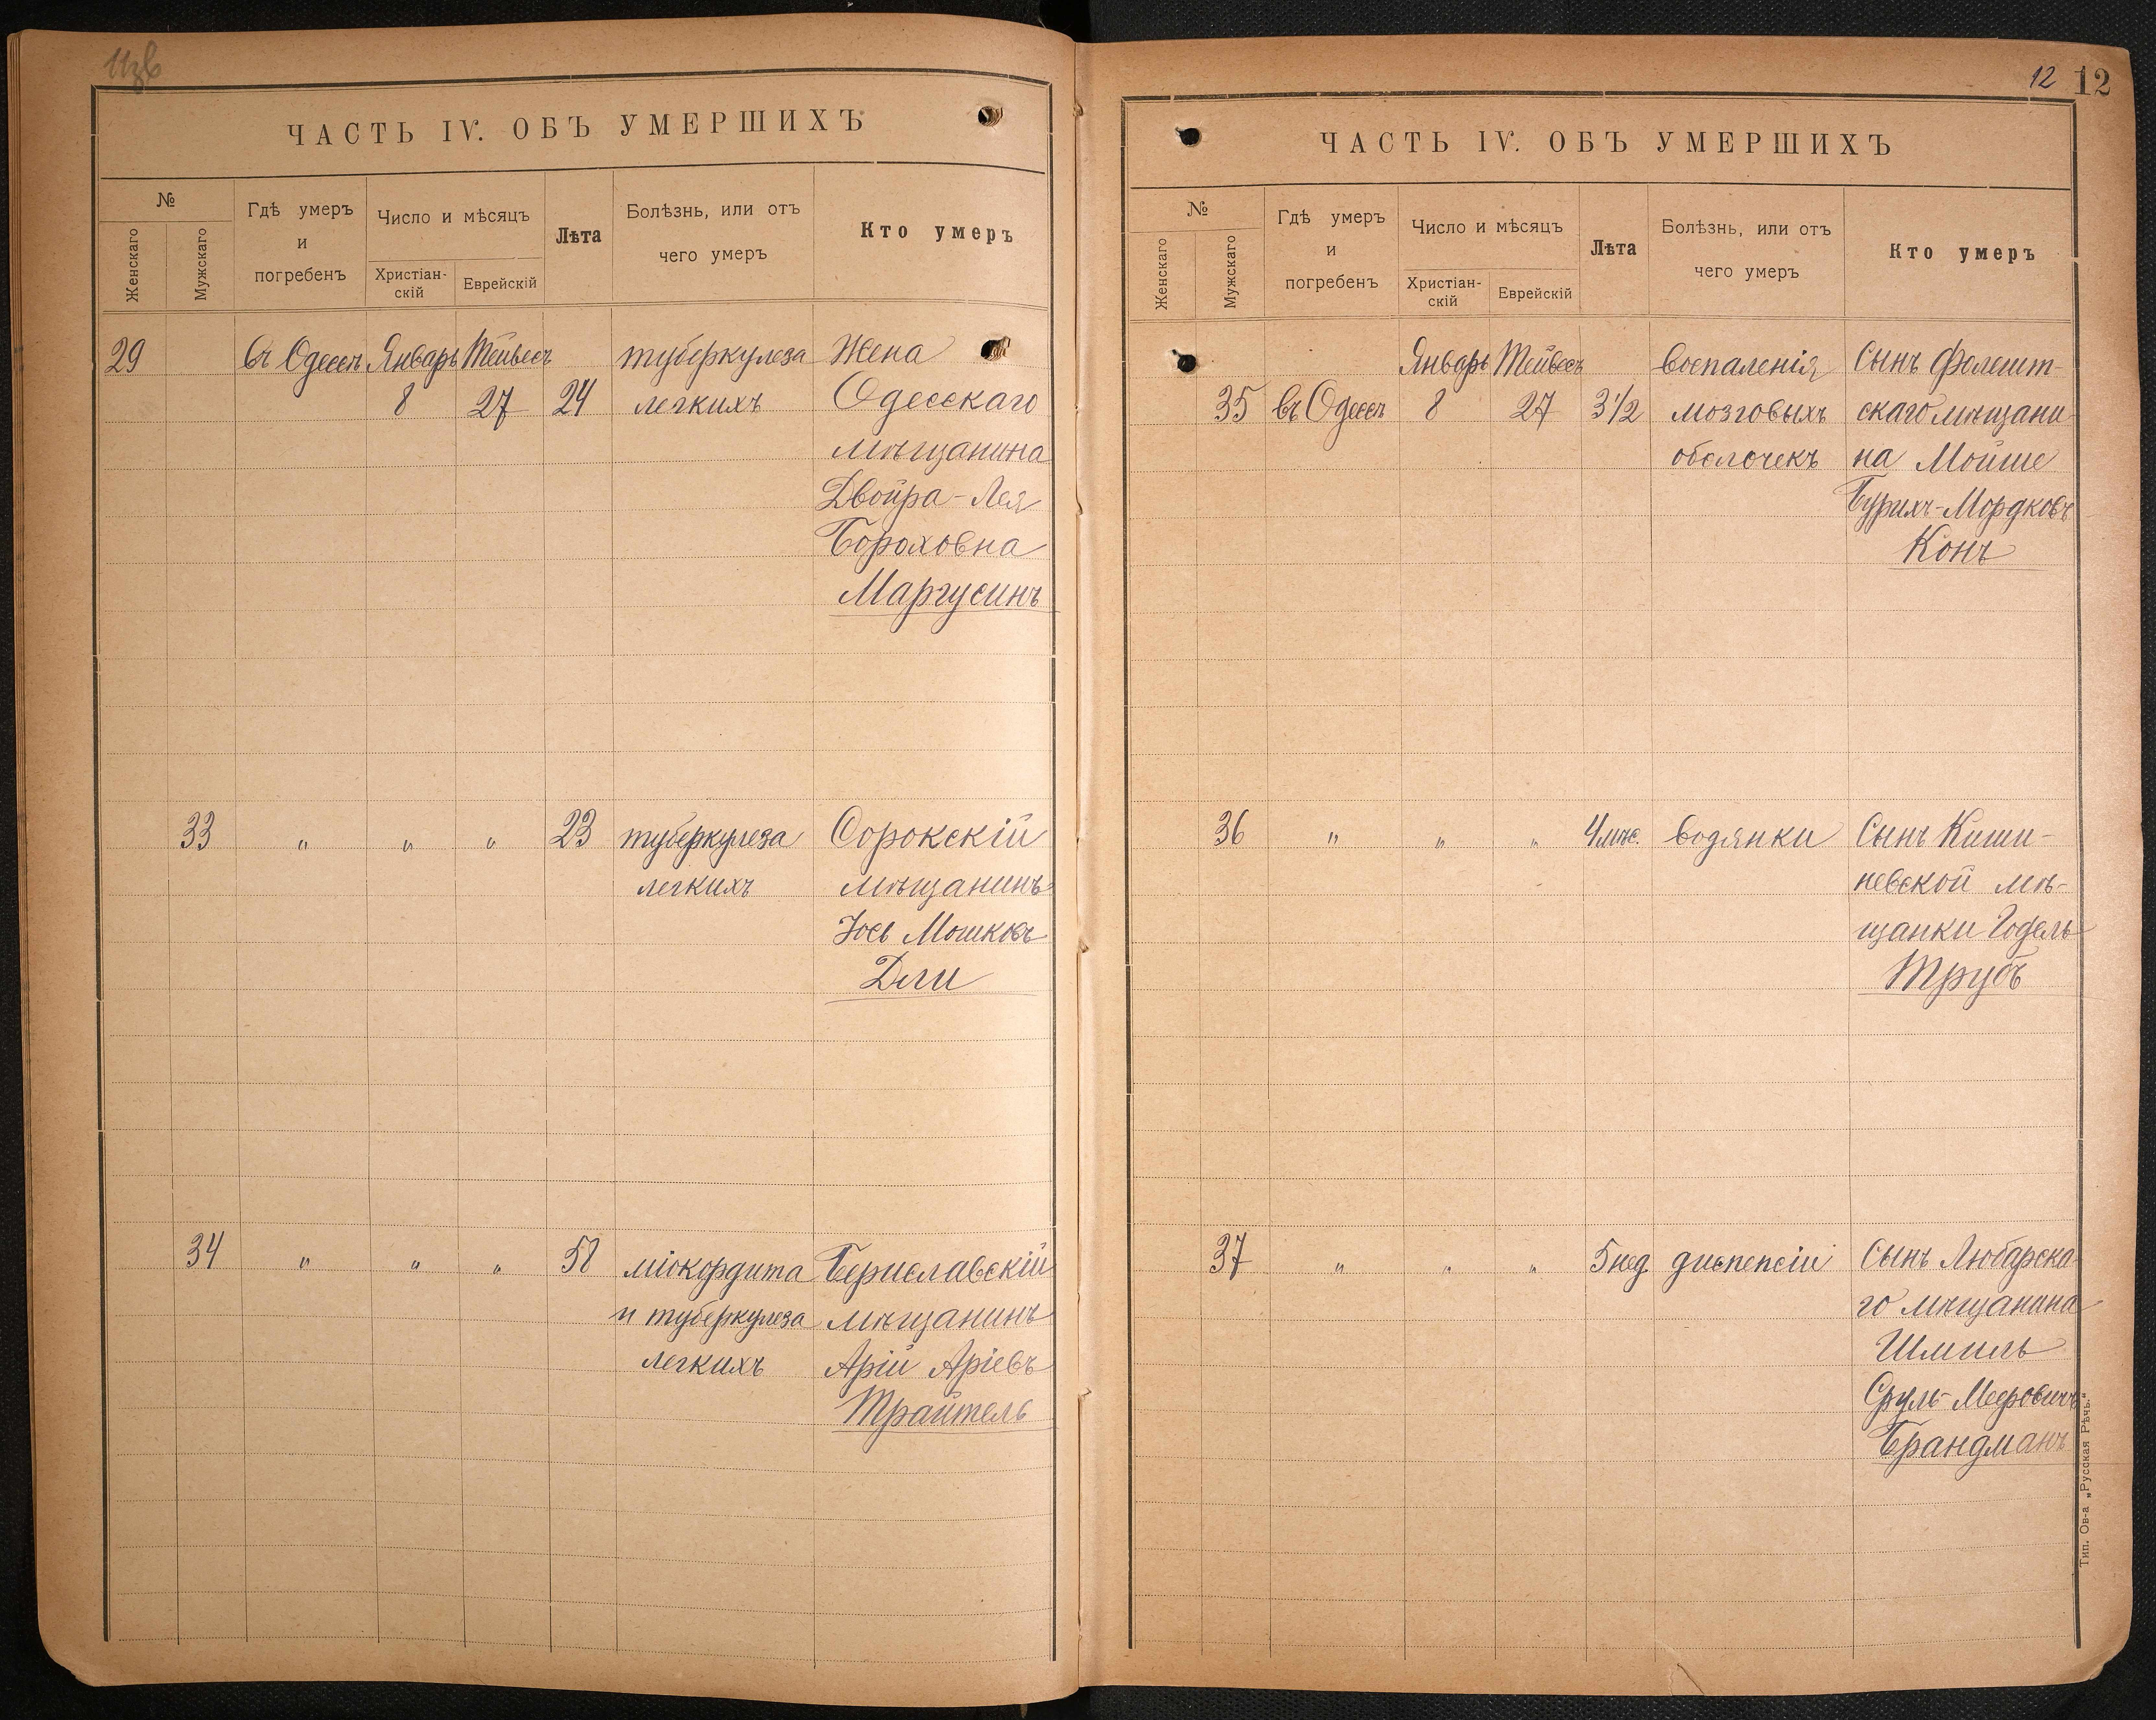 ЧАСТЬ IV. ОБЪ УМЕРШИХЪ
№
Женскаго
Мужскаго
Гдѣ умеръ
и
погребенъ
Число и мѣсяцъ
Христіан-
скій
Еврейскій
Лѣта
Болѣзнь, или отъ
чего умеръ
Кто умеръ
29 въ Одессѣ Январь Тейвесъ туберкулеза Жена
8 27 24 легкихъ Одесскаго
мѣщанина
Двойра-Лея
Бороховна
Маргусинъ
33 " " " 23 туберкулеза Сорокскій
легкихъ мѣщанинъ
Іось Мошковъ
Дли
34 " " " 58 міокордита Бериславскій
и туберкулеза мѣщанинъ
легкихъ Арій Аріевъ
Трайтель
12 12
ЧАСТЬ IV. ОБЪ УМЕРШИХЪ
№
Женскаго
Мужскаго
Гдѣ умеръ
и
погребенъ
Число и мѣсяцъ
Христіан-
скій
Еврейскій
Лѣта
Болѣзнь, или отъ
чего умеръ
Кто умеръ
Январь Тейвесъ воспаленія Сынъ Фалешт-
35 въ Одессѣ 8 27 3 1/2 мозговыхъ скаго мѣщани-
оболочекъ на Мойше
Бурихъ-Мордковъ
Конъ
36 " " " 4 мѣс. водянки Сынъ Киши-
невской мѣ-
щанки Годель
Трубъ
37 " " " 5 нед. диспепсіи Сынъ Любарска-
го мѣщанина
Шмиль
Сруль-Мееровичъ
Брандманъ
Тип. Ов-а „Русская Рѣчь".